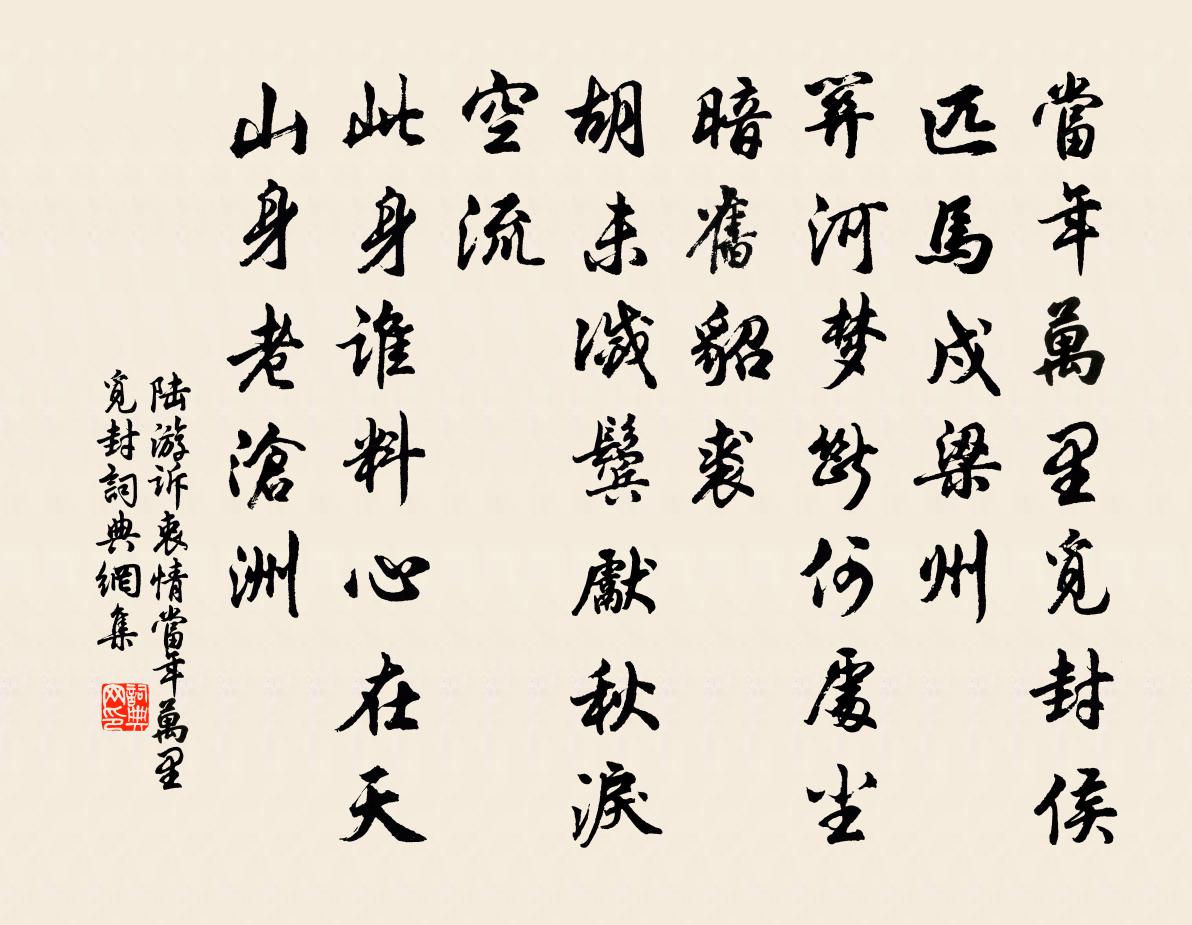 當年萬里覓封侯
匹馬戍梁州
關河梦斷何處尘
暗舊貂裘
胡未滅鬢獻秋淚
空流
此身谁料心在天
山身老滄洲
陆游诉衷情當年萬里
覓封詞典網集
詞典网印